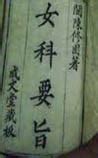 閩陳修園著
女科要旨
成文堂藏板